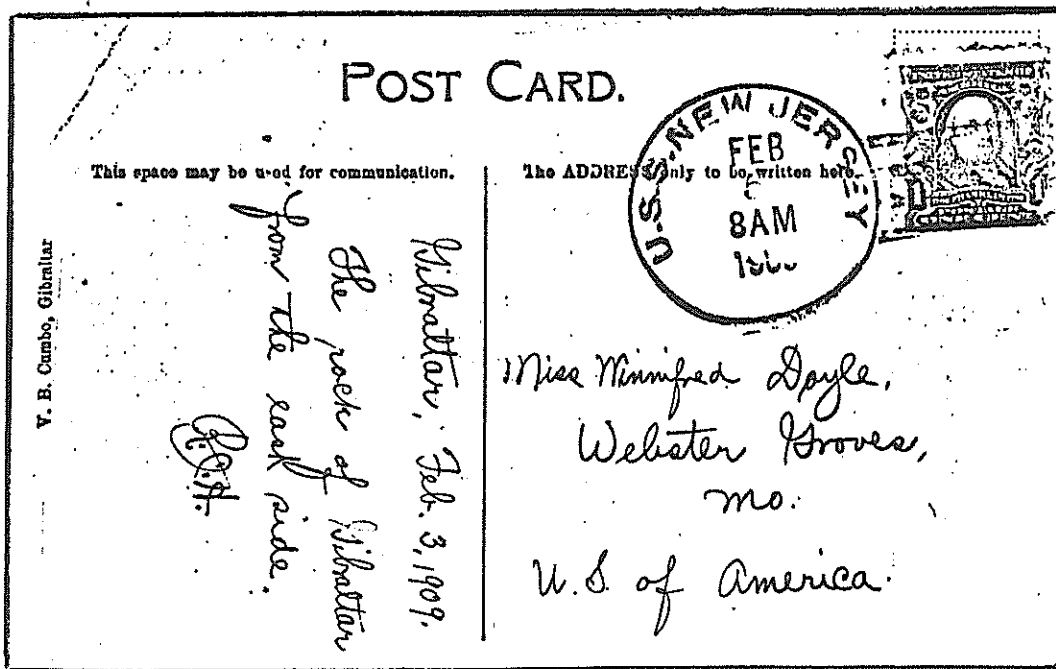 POST CARD.
This space may be used for communication.
The ADDRESS only to be written here.
V. B. Cumbo, Gibraltar
U.S.S. NEW JERSEY
FEB
8AM
Gibraltar, Feb. 3, 1909.
The rock of Gibraltar
from the east side.
Miss Winnifred Doyle,
Webster Groves,
Mo.
U.S. of America.